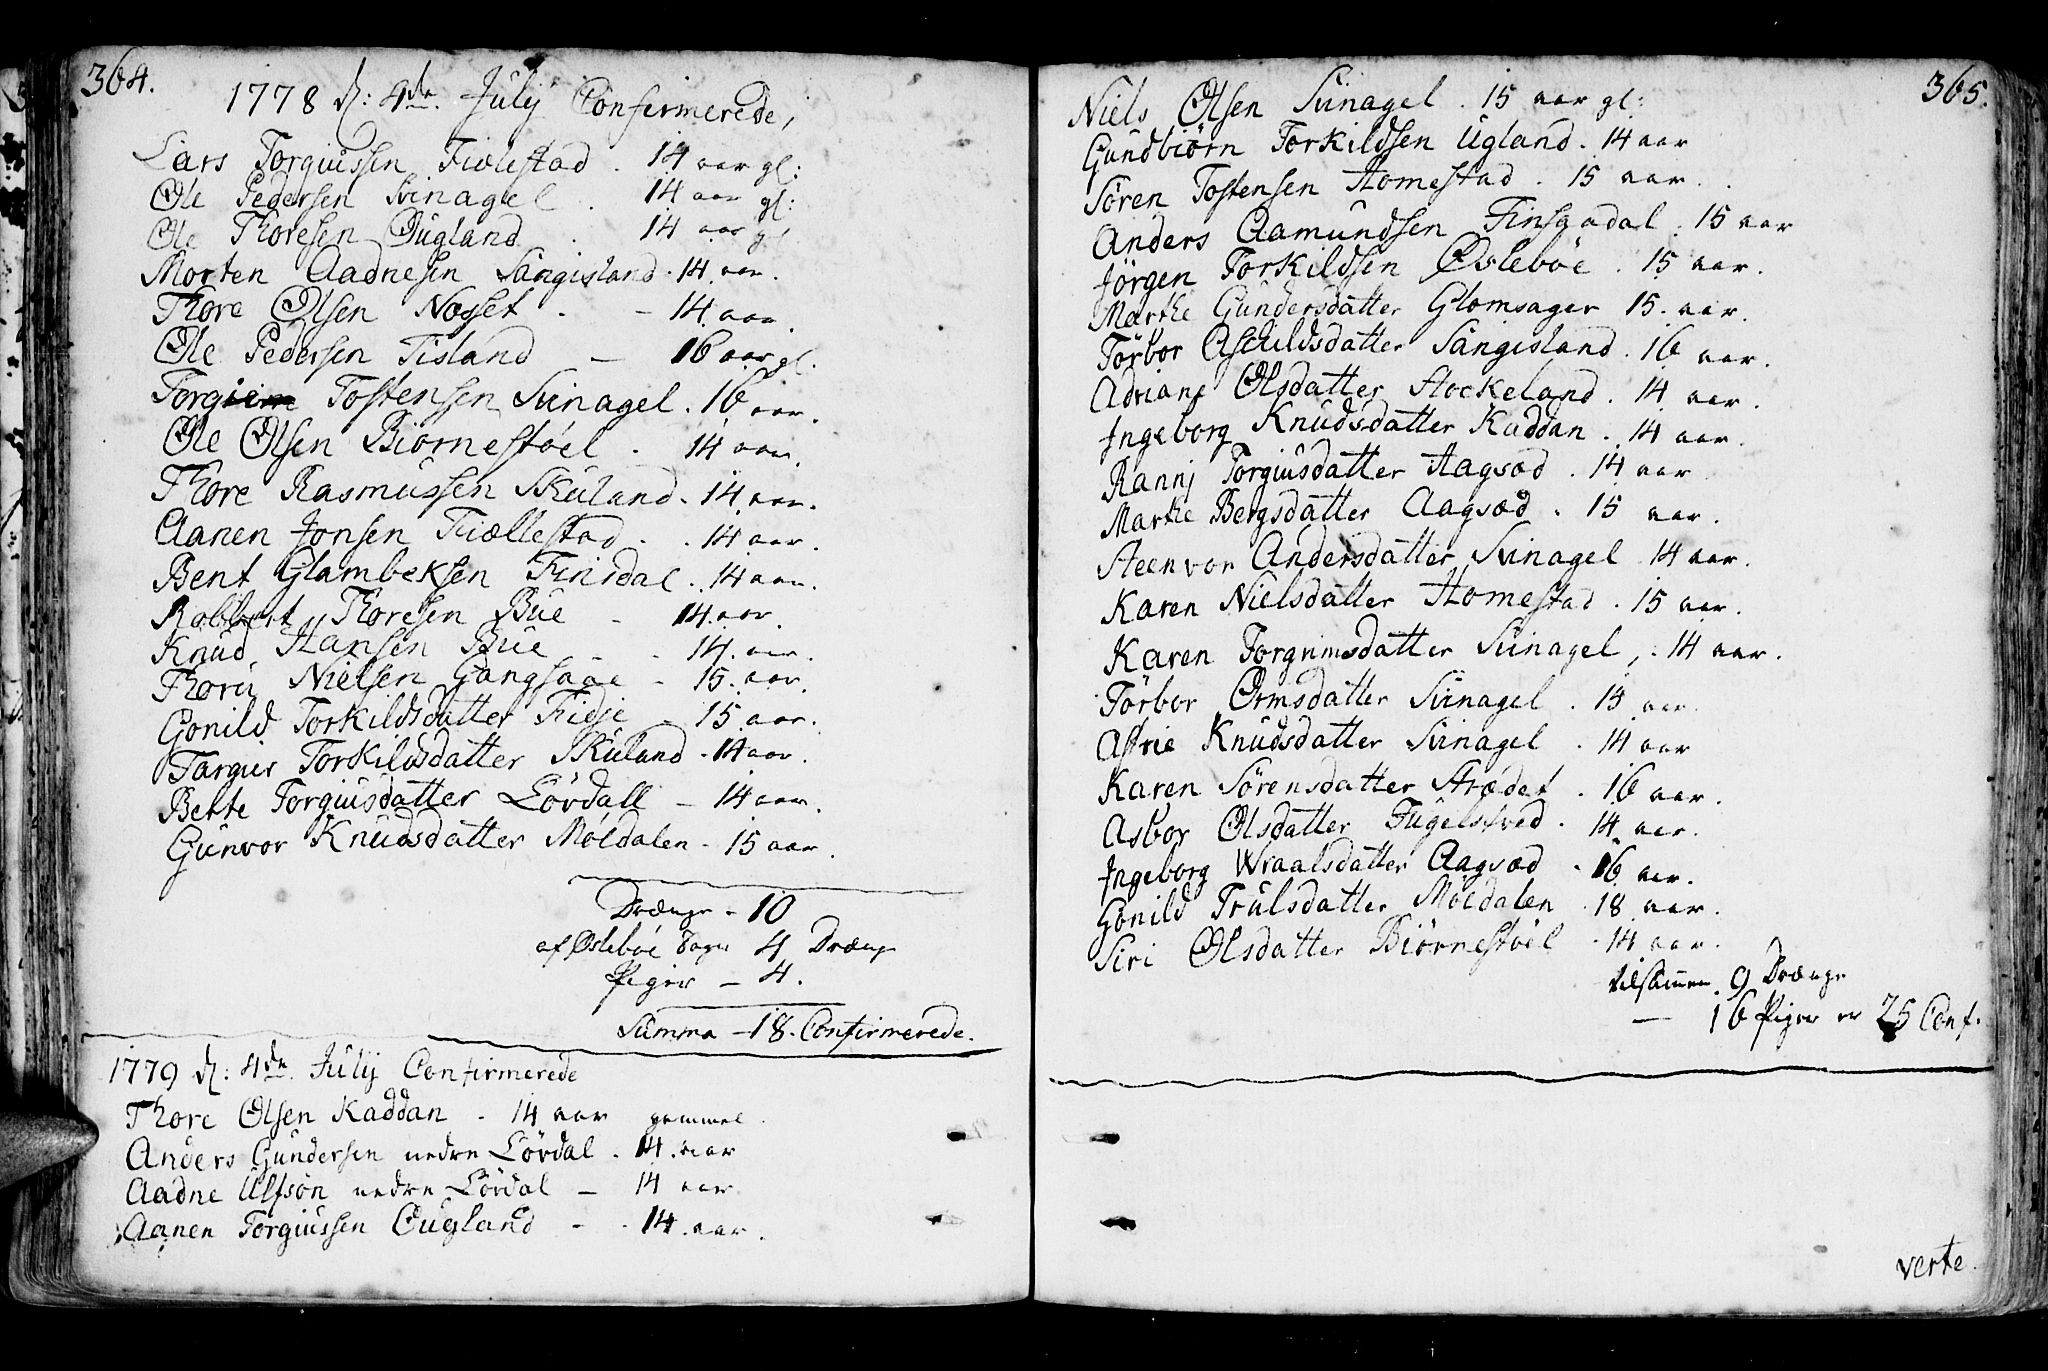 364.
1778 d: 4de. Julij Confirmerede,
Lars Torgiussen Fiælestad . 14 aar gl:
Ole Pedersen Svinagel . 14 aar gl:
Ole Thoresen Øugland . 14 aar gl.
Morten Aadnesen Sangisland . 14 aar.
Thore Olsen Nosset . - 14 aar.
Ole Pedersen Tisland — 16 aar gl.
Torgiem Tostensen Svinagel . 16 aar.
Ole Olsen Biørnestøel . 14 aar.
Thore Rasmussen Skuland . 14 aar.
Aanen Jonsen Fiællestad . . 14 aar.
Bent Glambeksen Finsdal . 14 aar.
Robbert Thoresen Bue - 14 aar.
Knud Hansen Bue - - 14. aar.
Nielsen Gangsaae - 15. aar.
Gonild Torkildsdatter Fidje - 15 aar.
Targier Torkildsdatter Skuland - 14 aar.
Bette Torgiusdatter Lövdall - 14 aar.
Gunvor Knudsdatter Moldalen - 15 aar.
Drænge - 10
af Øslebøe Sogn 4 Drænge
Piger - 4.
Summa - 18. Confirmerede.
1779 d: 4de. Julij Confirmerede
Thore Olsen Kaddan . 14 aar gammel.
Anders Gundersen nedre Lövdal . 14. aar
Aadne Ulfsøn nedre Lövdal — 14 aar
Aanen Torgiussen Øugland - . 14. aar.
365.
Niels Olsen Svinagel . 15 aar gl:
Gundbiörn Torkildsen Ugland . 14 aar
Sören Tostensen Homestad . 15 aar.
Anders Aamundsen Finsaadal . 15 aar
Jörgen Torkildsen Øslebøe . 15 aar.
Marthe Gundersdatter Glomsager 15. aar.
Törbor Aschildsdatter Sangisland . 16 aar.
Adriane Olsdatter Stockeland . 14 aar.
Ingeborg Knudsdatter Kaddan . 14 aar.
Rannj Torgiusdatter Hagsød . 14 aar
Marthe Bergsdatter Aagsød . 15 aar.
Steenvor Andersdatter Svinagel 14 aar.
Karen Nielsdatter Homestad . 15 aar.
Karen Torgrimsdatter Svinagel, . 14 aar.
Törbor Ormsdatter Svinagel . 14 aar.
Astrie Knudsdatter Svinagel . 14 aar
Karen Sörensdatter Strædet . 16 aar.
Asbor Olsdatter Fugelstved . 14 aar.
Ingeborg Wraalsdatter Aagsød . 16 aar.
Gonild Trulsdatter Moldalen . 18 aar.
Siri Olsdatter Biørnestøel . 14 aar.
tilsammen . 9 Drænge
— 16 Piger er 25 Conf.
verte.